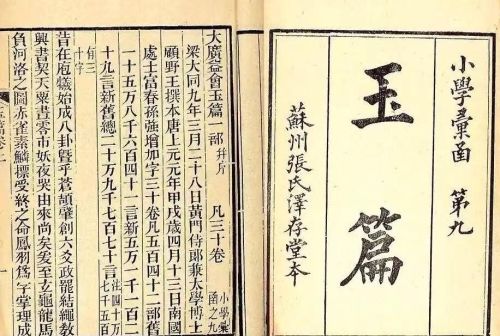 小學彙函 第九
玉篇
蘇州張氏澤存堂本
大廣益會玉篇一部 凡三十卷 小學彙函之九
梁大同九年三月二十八日黃門侍郎兼太學博士
顧野王撰本唐上元元年甲戌歲四月十三日南國
處士富春孫強增加字三十卷凡五百四十二部舊
一十五万八千六百四十一言新五万一千一百二
十九言新舊總二十万九千七百七十言 注四十万七千五百
有三十字
昔在庖犧始成八卦暨乎蒼頡肇創六爻政罷結繩教
興書契天粟晝零市妖夜哭由來尚矣爰至玄龜龍馬
負河洛之圖赤雀素鱗標受終之命鳳羽爲字掌理成